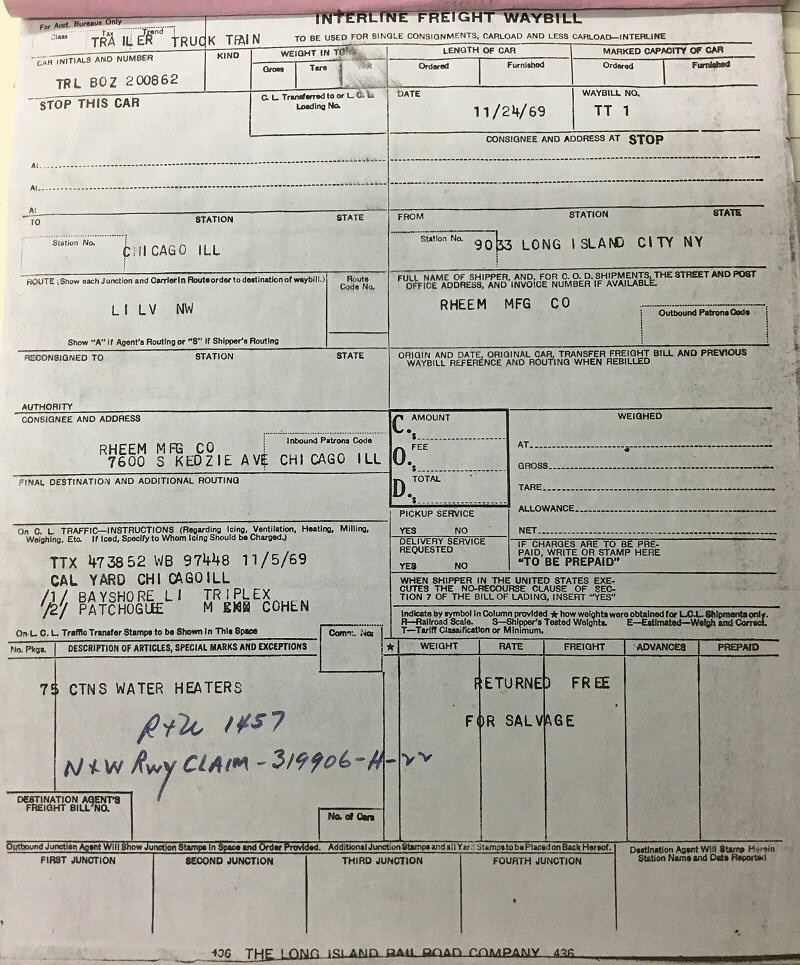 INTERLINE FREIGHT WAYBILL
For Acct. Bureaus Only
TO BE USED FOR SINGLE CONSIGNMENTS, CARLOAD AND LESS CARLOAD—INTERLINE
Class Tax Trend
TRAILER TRUCK TRAIN
CAR INITIALS AND NUMBER
TRL BOZ 200862
KIND
WEIGHT IN
Gross Tare
LENGTH OF CAR
Ordered Furnished
MARKED CAPACITY OF CAR
Ordered Furnished
STOP THIS CAR
C. L. Transferred to or L. C. L. Loading No.
DATE
11/24/69
WAYBILL NO.
TT 1
CONSIGNEE AND ADDRESS AT STOP
At
At
At
TO STATION STATE
Station No.
CHICAGO ILL
FROM STATION STATE
Station No.
9033 LONG ISLAND CITY NY
ROUTE (Show each Junction and Carrier in Route order to destination of waybill.)
LI LV NW
Show "A" if Agent's Routing or "S" if Shipper's Routing
Route Code No.
FULL NAME OF SHIPPER, AND, FOR C. O. D. SHIPMENTS, THE STREET AND POST
OFFICE ADDRESS, AND INVOICE NUMBER IF AVAILABLE.
RHEEM MFG CO
Outbound Patrons Code
RECONSIGNED TO STATION STATE
AUTHORITY
ORIGIN AND DATE, ORIGINAL CAR, TRANSFER FREIGHT BILL AND PREVIOUS
WAYBILL REFERENCE AND ROUTING WHEN REBILLED
CONSIGNEE AND ADDRESS
Inbound Patrons Code
RHEEM MFG CO
7600 S KEDZIE AVE CHICAGO ILL
C. O. D.
AMOUNT
$
FEE
$
TOTAL
$
WEIGHED
AT
GROSS
TARE
ALLOWANCE
NET
FINAL DESTINATION AND ADDITIONAL ROUTING
PICKUP SERVICE
YES NO
DELIVERY SERVICE
REQUESTED
YES NO
IF CHARGES ARE TO BE PRE-
PAID, WRITE OR STAMP HERE
"TO BE PREPAID"
On C. L. TRAFFIC—INSTRUCTIONS (Regarding Icing, Ventilation, Heating, Milling,
Weighing, Etc. If Iced, Specify to Whom Icing Should be Charged.)
TTX 473852 WB 97448 11/5/69
CAL YARD CHICAGOILL
/1/ BAYSHORE LI TRIPLEX
/2/ PATCHOGUE M COHEN
WHEN SHIPPER IN THE UNITED STATES EXE-
CUTES THE NO-RECOURSE CLAUSE OF SEC-
TION 7 OF THE BILL OF LADING, INSERT "YES"
Indicate by symbol in Column provided ★ how weights were obtained for L.C.L. Shipments only.
R—Railroad Scale. S—Shipper's Tested Weights. E—Estimated—Weigh and Correct.
T—Tariff Classification or Minimum.
On L. C. L. Traffic Transfer Stamps to be Shown in This Space
Comm. No.
No. Pkgs. DESCRIPTION OF ARTICLES, SPECIAL MARKS AND EXCEPTIONS ★ WEIGHT RATE FREIGHT ADVANCES PREPAID
75 CTNS WATER HEATERS
RETURNED FREE
FOR SALVAGE
1457
N+W Rwy CLAIM-319906-H-22
DESTINATION AGENT'S
FREIGHT BILL NO.
No. of Cars
Outbound Junction Agent Will Show Junction Stamps in Space and Order Provided. Additional Junction Stamps and all Yard Stamps to be Placed on Back Hereof.
Destination Agent Will Stamp Herein
Station Name and Date Reported
FIRST JUNCTION SECOND JUNCTION THIRD JUNCTION FOURTH JUNCTION
436 THE LONG ISLAND RAIL ROAD COMPANY 436